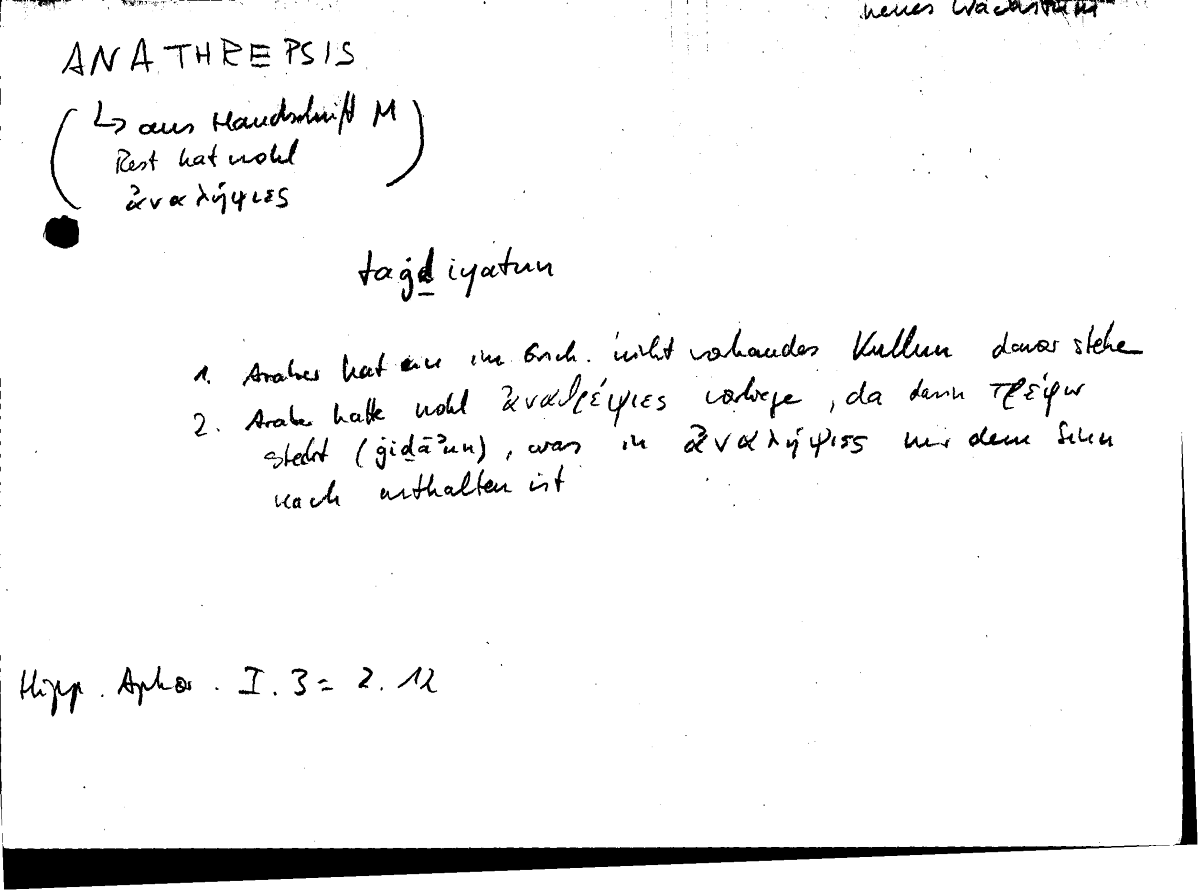 neues Wachstum
ANATHREPSIS
( ↳ aus Handschrift M )
Rest hat wohl
ἀναλήψιες
taġḏiyatun
1. Araber hat ein im Griech. nicht vorhandes Kullun davor stehe
2. Araber hatte wohl ἀναθρέψιες vorliege, da darin τρέφω
steckt (ġiḏāʾun), was in ἀναλήψιες nur dem Sinn
nach enthalten ist
Hipp. Aphor. I. 3 = 2. 12